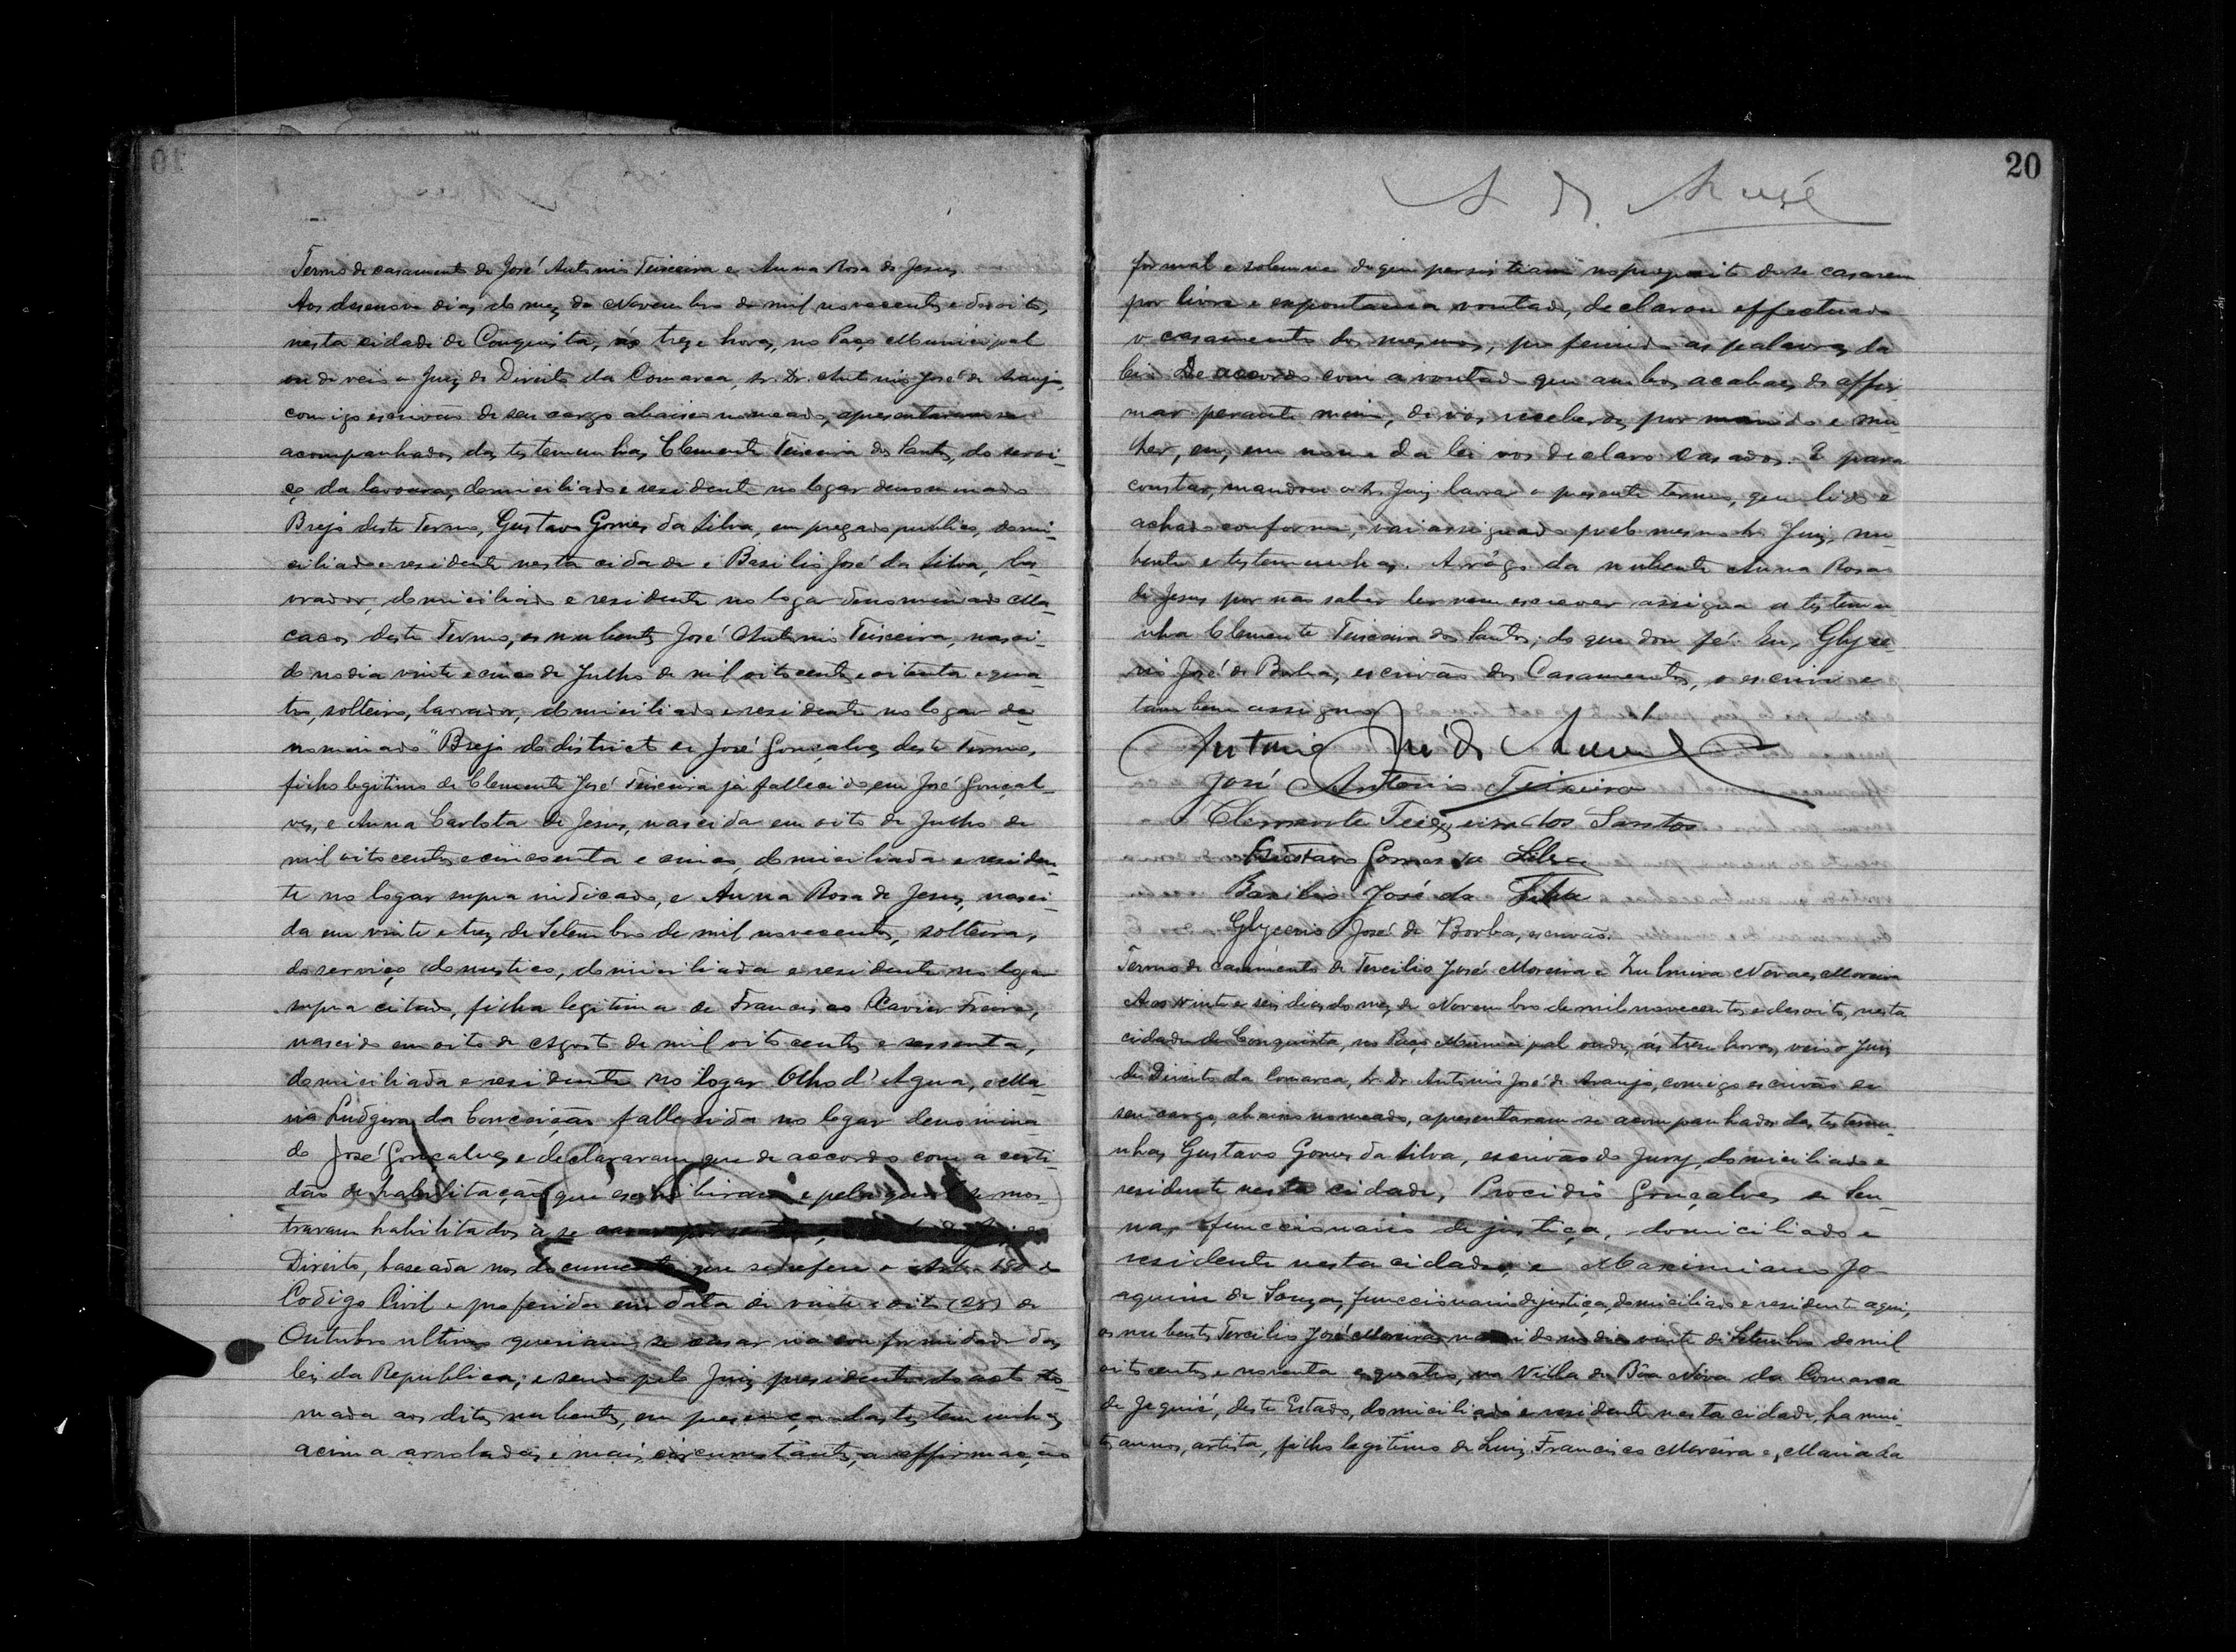 20
Termo de casamento de José Antonio Teixeira e Anna Rosa de Jesus
Aos desenove dias do mez de Novembro de mil novecentos e desoito,
nesta cidade de Conquista, ás treze horas, no Paço Municipal
onde veio o Juiz de Direito da Comarca, sr. Dr. Antonio José de Araujo,
comigo escrivão de seu cargo abaixo nomeado, apresentaram-se
acompanhados das testemunhas, Clemente Teixeira dos Santos, do servi-
ço da lavoura, domiciliado e residente no logar denominado
Brejo deste Termo, Gustavo Gomes da Silva, empregado publico, domi-
ciliado e residente nesta cidade e Basilio José da Silva, la-
vrador, domiciliado e residente no logar denominado Ma-
cacos deste Termo, os nubentes José Antonio Teixeira, nasci-
do no dia vinte e cinco de Julho de mil oitocentos e oitenta e qua-
tro, solteiro, lavrador, domiciliado e residente no logar de-
nominado "Brejo do districto de José Gonçalves deste termo,
filho legitimo de Clemente José Teixeira já fallecido, em José Gonçal-
ves, e Anna Carlota de Jesus, nascida em oito de Julho de
mil oitocentos e cincoenta e cinco, domiciliada e residen-
te no logar supra indicado, e Anna Rosa de Jesus, nasci-
da em vinte e tres de Setembro de mil novecentos, solteira,
do serviço domestico, domiciliada e residente no logar
supra citado, filha legitima de Francisco Xavier Freire,
nascido em oito de Agosto de mil oitocentos e sessenta,
domiciliada e residente no logar Olho d'Agua, e Ma-
ria Ludgera da Conceição fallecida no logar denomina-
do José Gonçalves, e declararam que de accordo com a certi-
dão de habilitação que exhibiram e pela qual se mos-
travam habilitados a se
Direito, baseada nos documentos que se refere o Art. 180 do
Codigo Civil e proferida em data de vinte e oito (28) de
Outubro ultimo queriam se casar na conformidade das
leis da Republica; e sendo pelo Juiz presidente do acto to-
mada aos ditos nubentes, em presença das testemunhas
acima arroladas, e mais circumstantes, a affirmação
formal e solemne de que persistiam no proposito de se casarem
por livre e expontanea vontade, declarou effectuado
o casamento dos mesmos, proferindo as palavras da
lei: De accordo com a vontade que ambos acabaes de affir-
mar perante mim, de vos receberdes por marido e mu-
lher, eu, em nome da lei vos declaro casados. E para
constar, mandou o sr Juiz lavrar o presente termo, que lido e
achado conforme, vai assignado pelo mesmo sr. Juiz, nu-
bente e testemunhas. A rôgo da nubente Anna Rosa
de Jesus por não saber ler nem escrever assigna a testemu-
nha Clemente Teixeira dos Santos; do que dou fé. Eu, Glyce-
rio José de Borba, escrivão dos Casamentos, o escrevi e
tambem assigno
José Antonio Teixeira
Clemente Teixeira dos Santos
Gustavo Gomes da Silva
Basilio José da Silva
Glycerio José de Borba, escrivão.
Termo de casamento de Tercilio José Moreira e Zulmira Novaes Moreira
Aos vinte e seis dias do mez de Novembro de mil novecentos e desoito, nesta
cidade de Conquista, no Paço Municipal onde, ás treze horas, veio o Juiz
de Direito da Comarca, sr. Dr. Antonio José de Araujo, comigo escrivão de
seu cargo, abaixo nomeado, apresentaram-se acompanhados das testemu-
nhas, Gustavo Gomes da Silva, escrivão do Jury, domiciliado e
residente nesta cidade, Gonçalves de Sen-
na, funccionario de justiça, domiciliado e
residente nesta cidade, e Maximiano Jo-
aquim de Souza, funccionario de justiça, domiciliado e residente aqui,
os nubentes Tercilio José Moreira nascido no dia vinte de Setembro de mil
oitocentos e noventa e quatro, na Villa de Bôa Nova da Comarca
de Jequié, deste Estado, domiciliado e residente nesta cidade, ha mui-
tos annos, artista, filho legitimo de Luiz Francisco Moreira e, Maria da